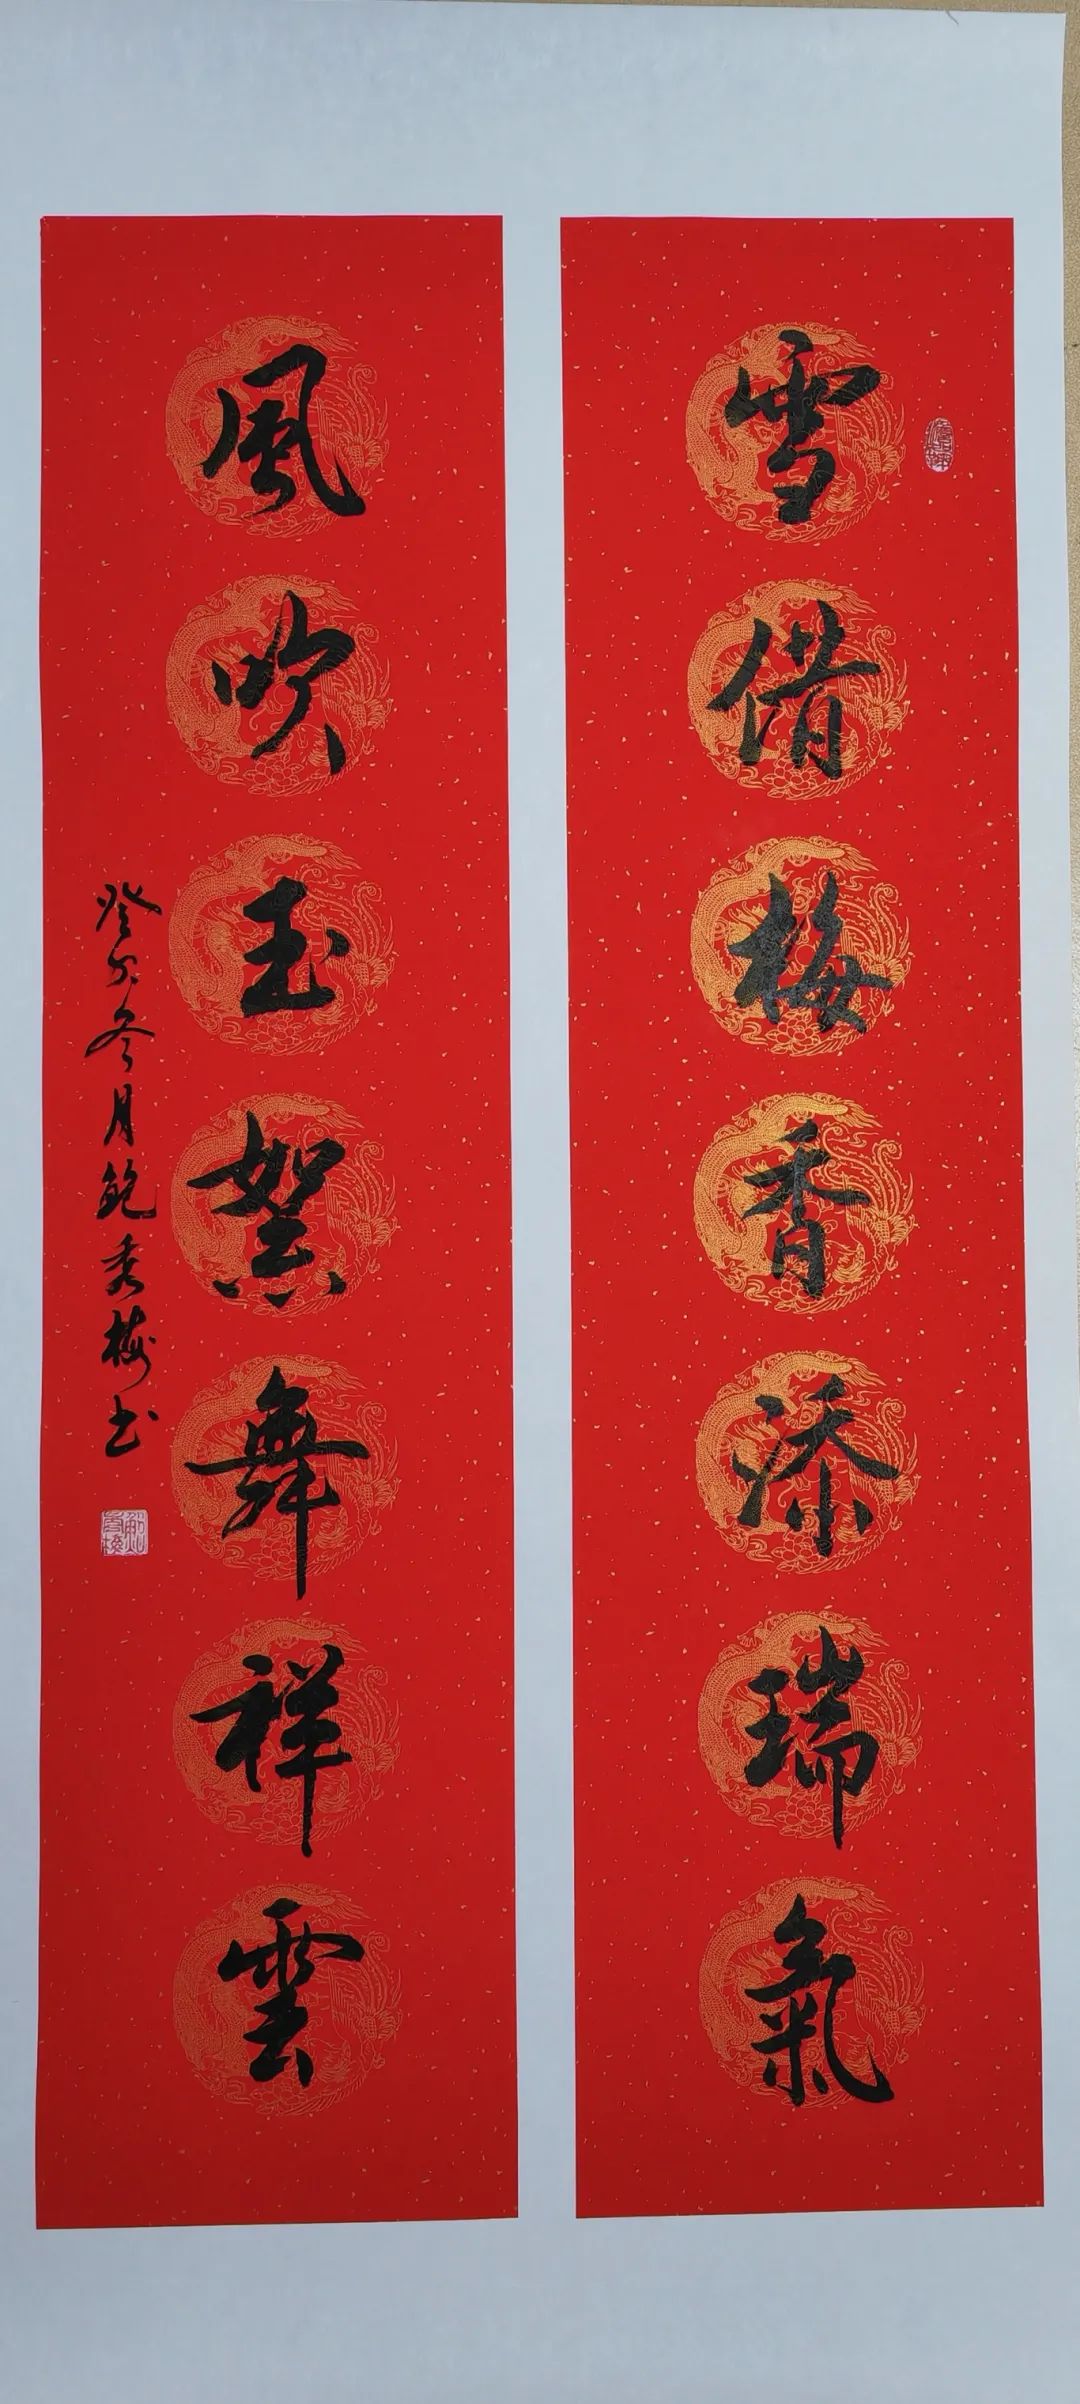 雪借梅香添瑞氣
風吹玉絮舞祥雲
癸卯冬月鲍秀梅书